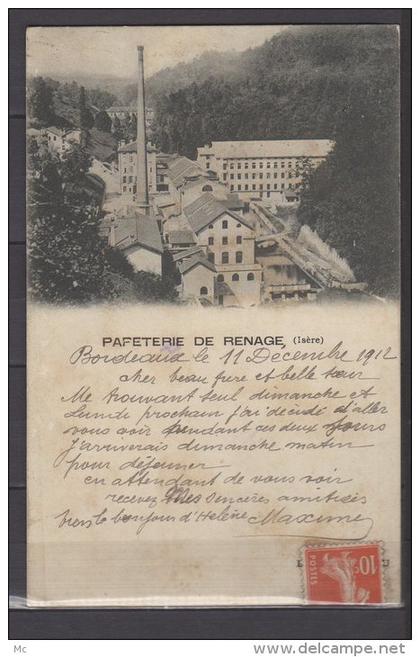 PAPETERIE DE RENAGE, (Isère)
Bordeaux le 11 Décembre 1912
cher beau frere et belle sœur
Me trouvant seul dimanche et
Lundi prochain j'ai décidé d'aller
vous voir pendant ces deux jours
j'arriverais dimanche matin
pour déjeuner
en attendant de vous voir
recevez Mes sincères amitiés
bien le bonjour d'Helène Maxime
10c
POSTES
Mc
www.delcampe.net